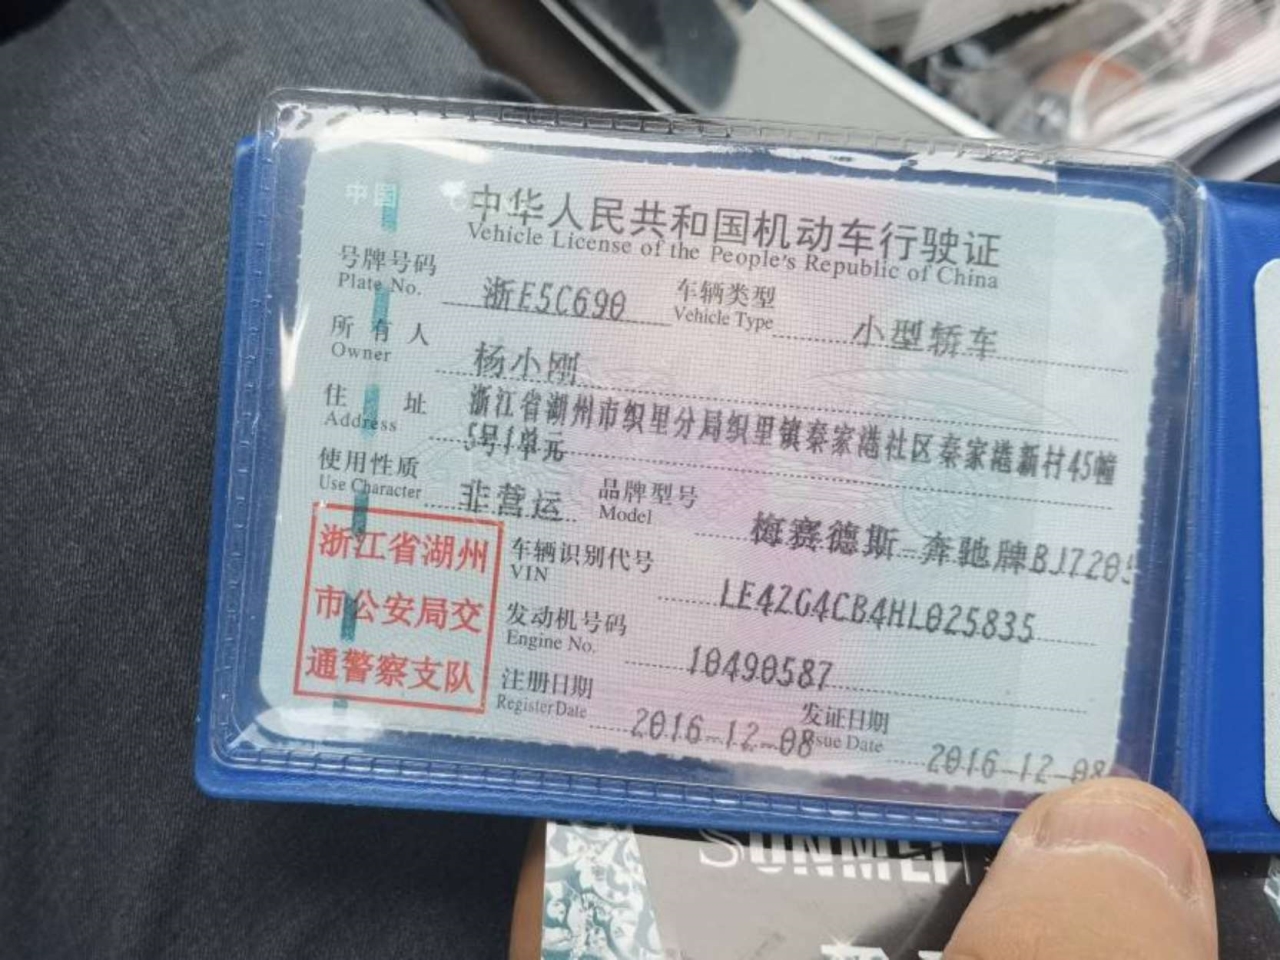 中国
中华人民共和国机动车行驶证
Vehicle License of the People's Republic of China
号牌号码 浙E5C690 车辆类型 小型轿车
Plate No. Vehicle Type
所有人 杨小刚
Owner
住址 浙江省湖州市织里分局织里镇秦家港社区秦家港新村45幢
Address 5号1单元
使用性质 非营运 品牌型号 梅赛德斯-奔驰牌BJ7205
Use Character Model
浙江省湖州
市公安局交
通警察支队
车辆识别代号 LE4ZG4CB4HL025835
VIN
发动机号码 10490587
Engine No.
注册日期 2016-12-08 发证日期 2016-12-08
Register Date Issue Date
SUNMEI